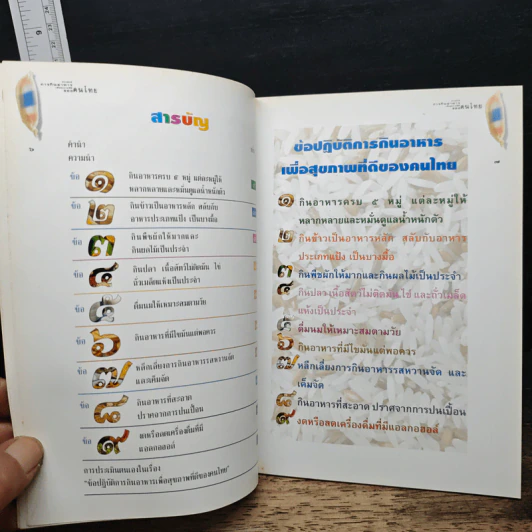 คนไทย
สารบัญ
คำนำ
ความนำ
ข้อ ๑ กินอาหารครบ ๕ หมู่ แต่ละหมู่ให้
หลากหลายและหมั่นดูแลน้ำหนักตัว
ข้อ ๒ กินข้าวเป็นอาหารหลัก สลับกับ
อาหารประเภทแป้ง เป็นบางมื้อ
ข้อ ๓ กินพืชผักให้มากและ
กินผลไม้เป็นประจำ
ข้อ ๔ กินปลา เนื้อสัตว์ไม่ติดมัน ไข่
ถั่วเมล็ดแห้งเป็นประจำ
ข้อ ๕ ดื่มนมให้เหมาะสมตามวัย
ข้อ ๖ กินอาหารที่มีไขมันแต่พอควร
ข้อ ๗ หลีกเลี่ยงการกินอาหารรสหวานจัด
และเค็มจัด
ข้อ ๘ กินอาหารที่สะอาด
ปราศจากการปนเปื้อน
ข้อ ๙ งดหรือลดเครื่องดื่มที่มี
แอลกอฮอล์
การประเมินตนเองในเรื่อง
"ข้อปฏิบัติการกินอาหารเพื่อสุขภาพที่ดีของคนไทย"
คนไทย
ข้อปฏิบัติการกินอาหาร
เพื่อสุขภาพที่ดีของคนไทย
๑ กินอาหารครบ ๕ หมู่ แต่ละหมู่ให้
หลากหลายและหมั่นดูแลน้ำหนักตัว
๒ กินข้าวเป็นอาหารหลัก สลับกับอาหาร
ประเภทแป้ง เป็นบางมื้อ
๓ กินพืชผักให้มากและกินผลไม้เป็นประจำ
๔ กินปลา เนื้อสัตว์ไม่ติดมัน ไข่ และถั่วเมล็ด
แห้งเป็นประจำ
๕ ดื่มนมให้เหมาะสมตามวัย
๖ กินอาหารที่มีไขมันแต่พอควร
๗ หลีกเลี่ยงการกินอาหารรสหวานจัด และ
เค็มจัด
๘ กินอาหารที่สะอาด ปราศจากการปนเปื้อน
๙ งดหรือลดเครื่องดื่มที่มีแอลกอฮอล์